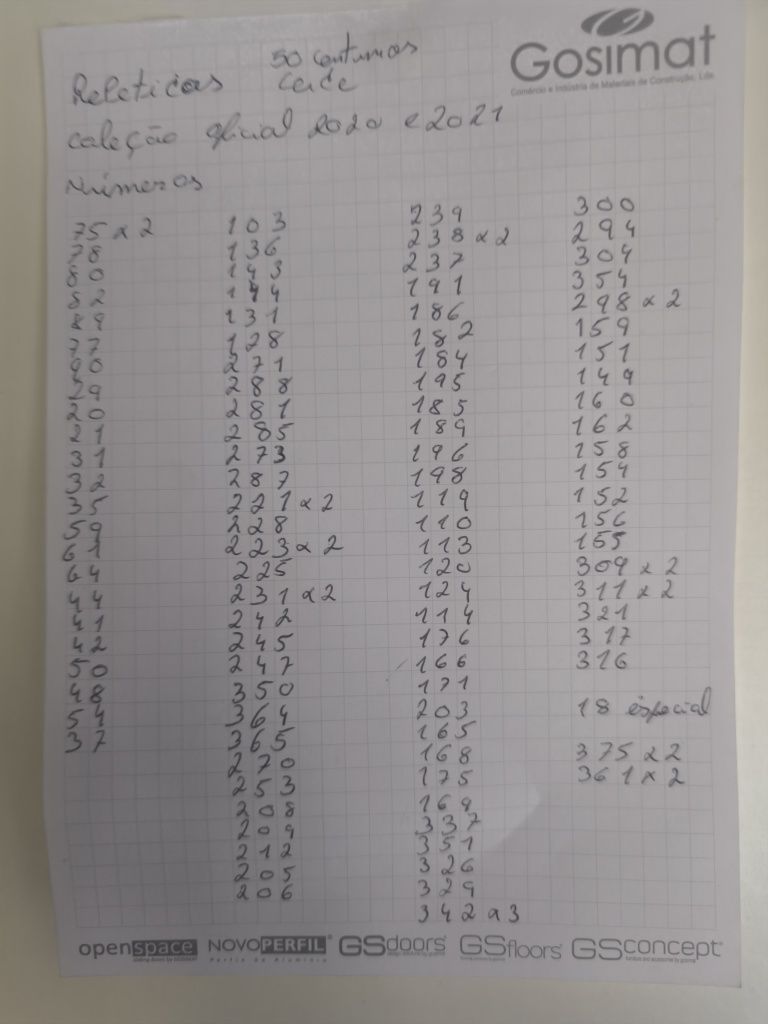 Gosimat
Comércio e Indústria de Materiais de Construção, Lda
50 centimos
Releticas cade
coleção oficial 2020 e 2021
Números
75 x 2
78
80
82
89
77
90
29
20
21
31
32
35
59
61
64
44
41
42
50
48
54
37
103
136
143
144
131
128
271
288
281
285
273
287
221 x 2
228
223 x 2
225
231 x 2
242
245
247
350
364
365
270
253
208
209
212
205
206
239
238 x 2
237
191
186
182
184
195
185
189
196
198
119
110
113
120
124
114
176
166
171
203
165
168
175
169
337
351
326
329
342 x 3
300
294
304
354
298 x 2
159
151
149
160
162
158
154
152
156
155
309 x 2
311 x 2
321
317
316
18 especial
375 x 2
361 x 2
openspace NOVOPERFIL GSdoors GSfloors GSconcept
Perfis de Alumínio